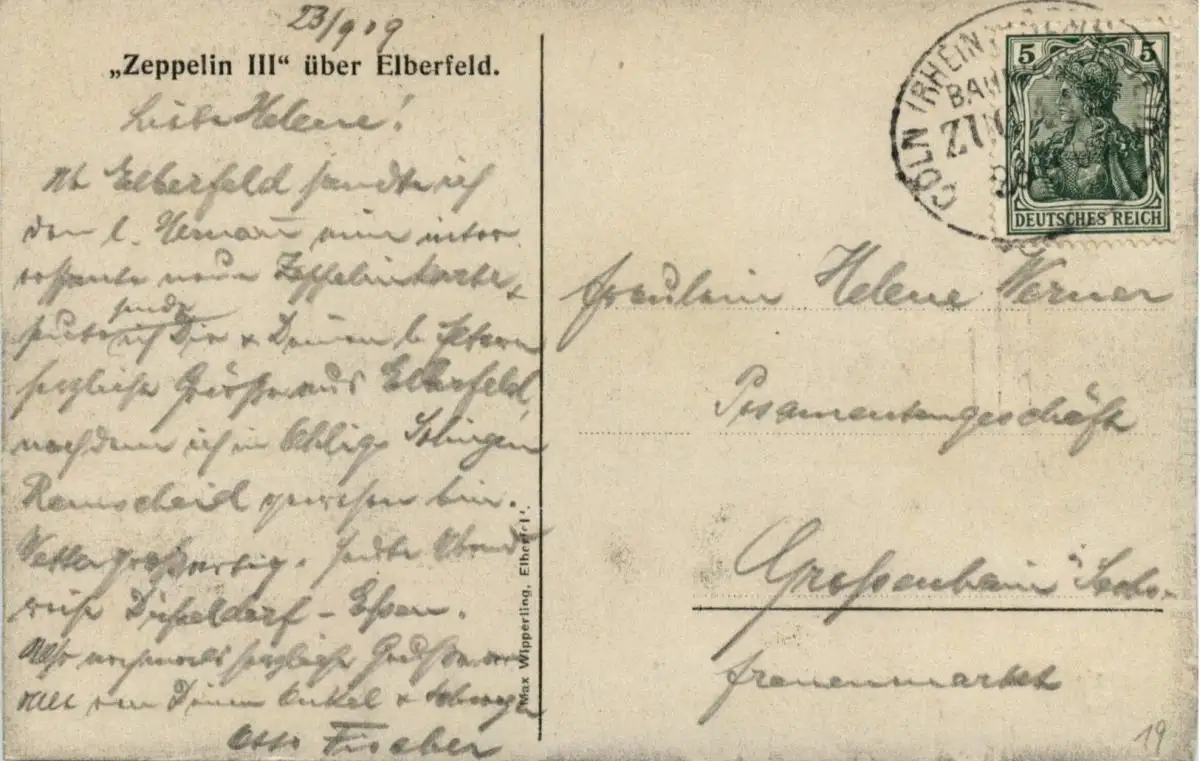 23/9 09
„Zeppelin III“ über Elberfeld.
Liebe Helene!
Elberfeld sandte ich
dem l. Werner eine inter
essante neue Zeppelinkarte,
sende
heute ich Dir & Deinen l. Eltern
herzliche Grüße aus Elberfeld,
nachdem ich in Ohligs Solingen
Remscheid gewesen bin.
Wetter großartig. Heute Abend
reise Düsseldorf – Essen.
Also nochmals herzliche Grüße
von Deinem Onkel &
Otto Fischer
Max Wipperling, Elberfeld.
CÖLN (RHEIN)
BAHN
ZUG
5 5
DEUTSCHES REICH
Fräulein Helene Werner
Posamentengeschäft
Grossenhain Sachs.
Frauenmarkt
19